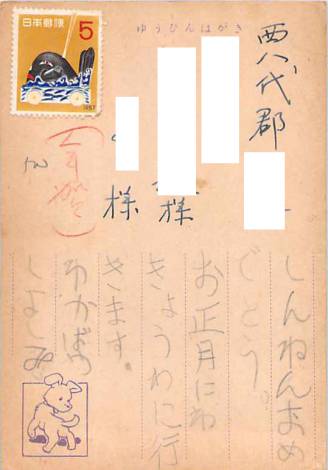 日本郵便
5
1957
ゆうびんはがき
西八代郡
様
様
(年賀)
しんねんおめ
でとう。
お正月にわ
きょうわに行
きます。
わかばや
しよしみ